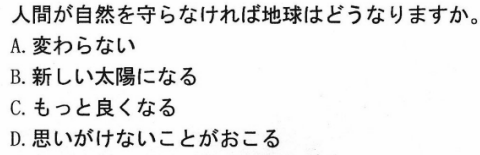 人間が自然を守らなければ地球はどうなりますか。
A. 変わらない
B. 新しい太陽になる
C. もっと良くなる
D. 思いがけないことがおこる